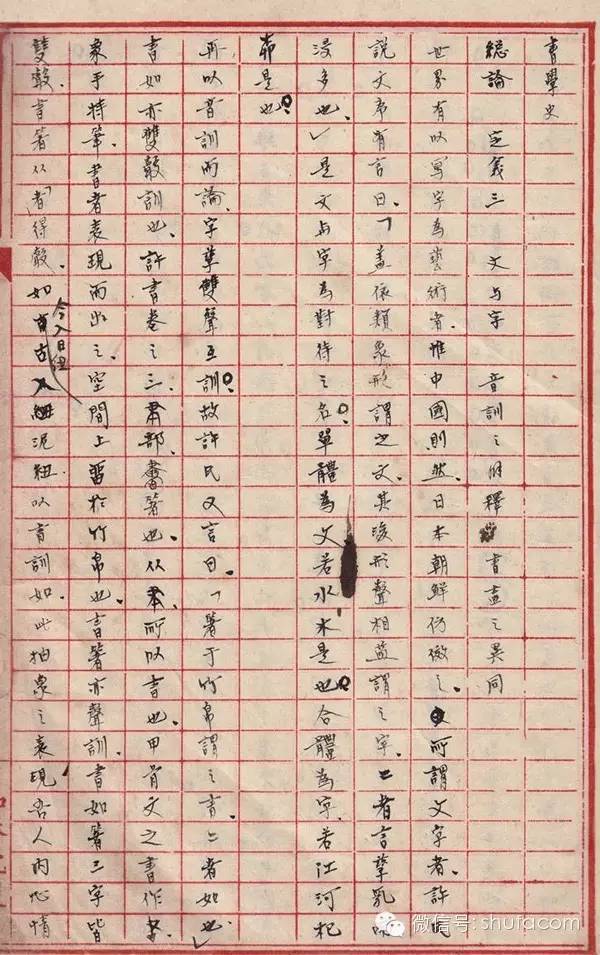 書學史
總論 定義三 文与字 音訓之釋 書畫之異同
世界有以寫字為藝術者惟中國則然、日本朝鮮仿傚之、所謂文字者、許
說文序有言曰、「蓋依類象形謂之文、其後形聲相益謂之字、二者言孳乳
浸多也、是文与字為對待之名。單體為文若水木是也。合體為字、若江河杞
茆是也。
再以音訓而論、字孳雙聲互訓。故許氏又言曰、「著于竹帛謂之書、二者如也、
書如亦雙聲訓也、許書卷之三聿部、書箸也、从聿所以書也、甲骨文之書作
象手持筆、書者表現而出之、空間上留於竹帛也、書箸亦聲訓、書如箸三字皆
雙聲、書箸从「者」得聲、如古入泥紐、以音訓如此抽象之表現、吾人內心情
今入日紐
微信号: shufacom